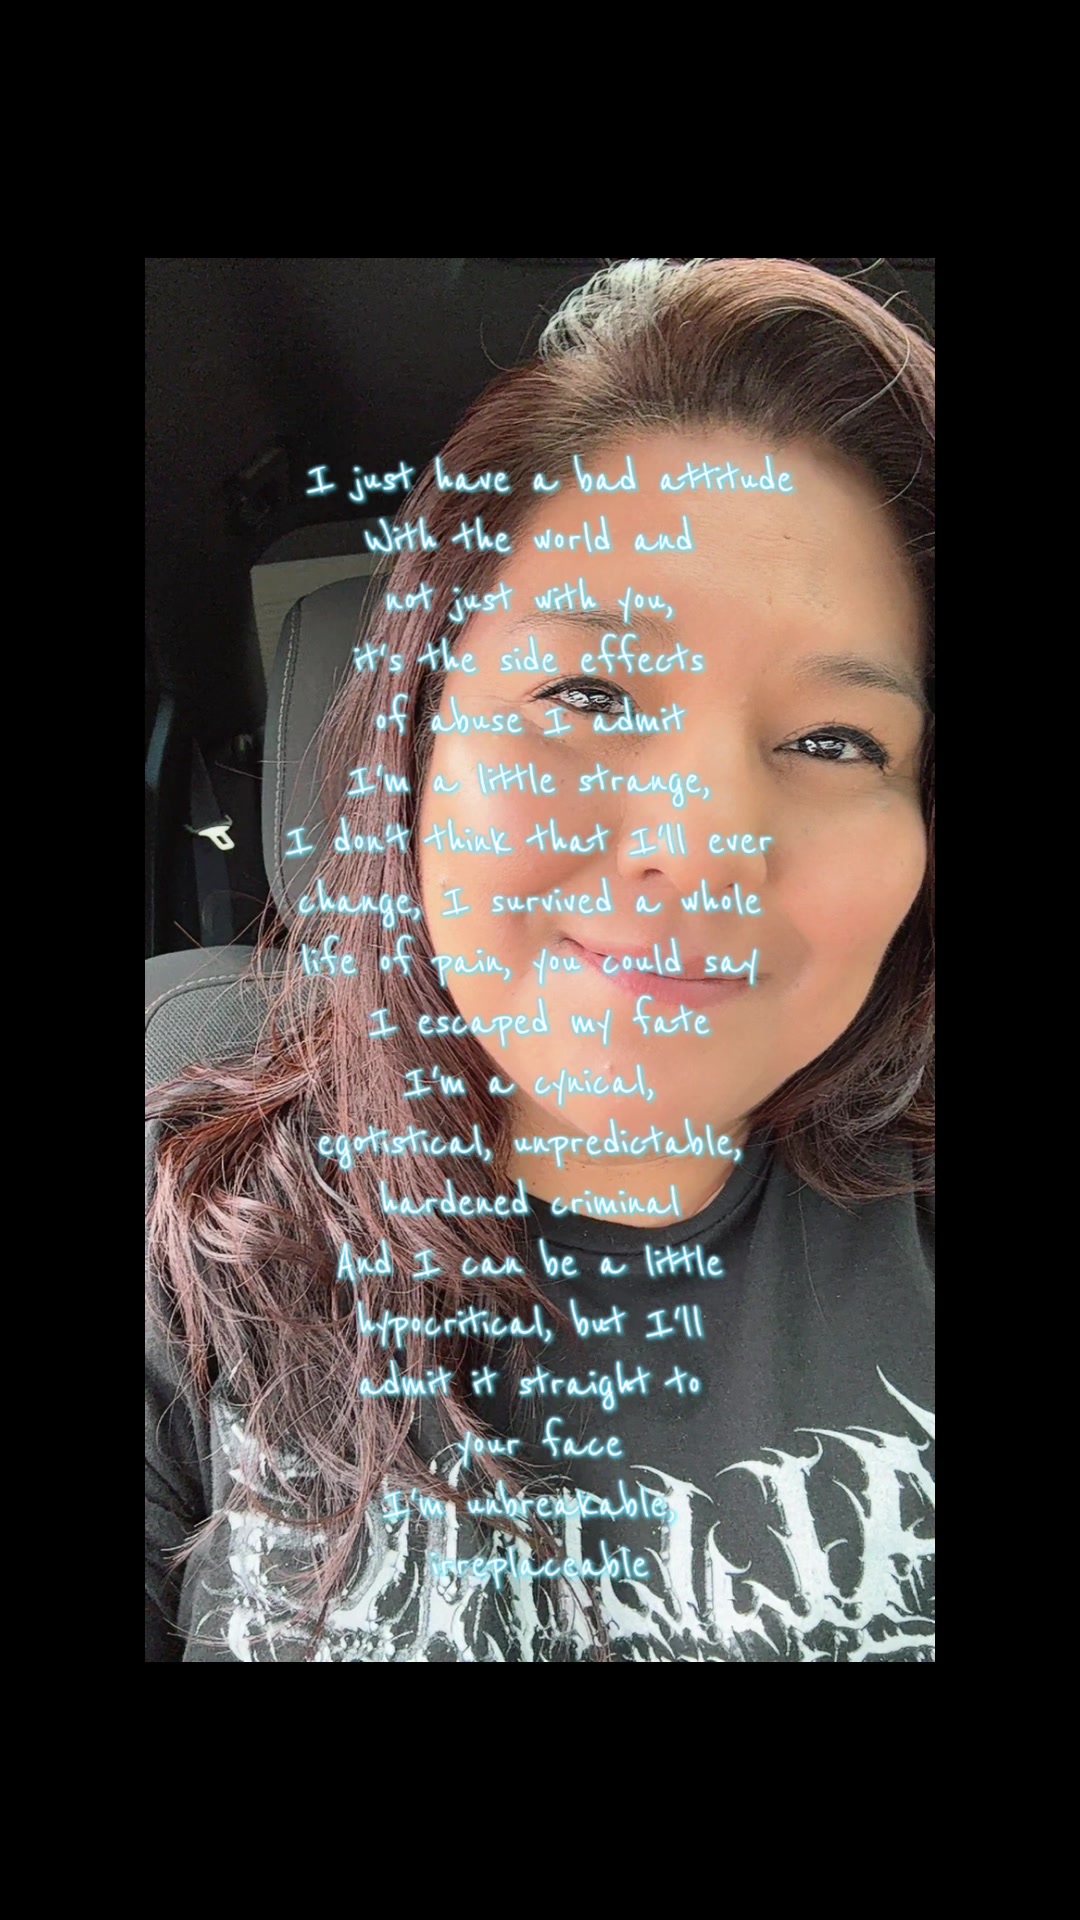 I just have a bad attitude
With the world and
not just with you,
it's the side effects
of abuse I admit
I'm a little strange,
I don't think that I'll ever
change, I survived a whole
life of pain, you could say
I escaped my fate
I'm a cynical,
egotistical, unpredictable,
hardened criminal
And I can be a little
hypocritical, but I'll
admit it straight to
your face
I'm unbreakable,
irreplaceable